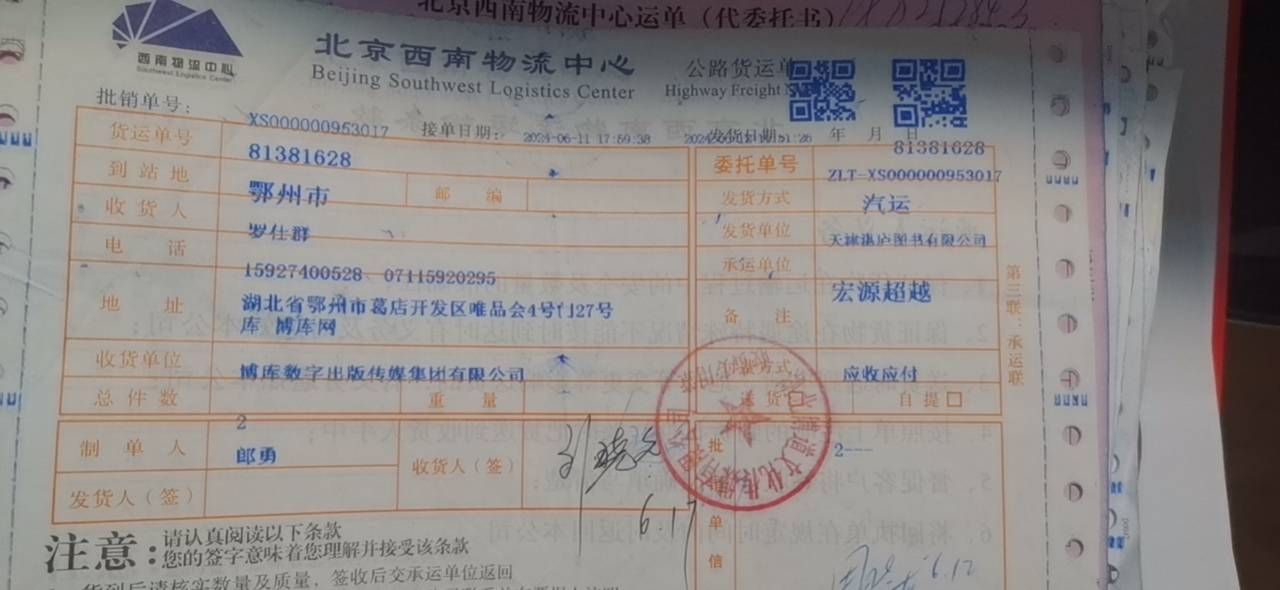 北京西南物流中心运单（代委托书）
西南物流中心
Southwest Logistics Center
北京西南物流中心
Beijing Southwest Logistics Center
公路货运单
Highway Freight
批销单号：
XS000000953017
接单日期：
2024-06-11 17:59:38
发货日期：
年 月 日
货运单号
81381628
委托单号
81381628
ZLT-XS000000953017
到站地
鄂州市
邮编
发货方式
汽运
收货人
罗仕群
发货单位
天津湛庐图书有限公司
电话
15927400528、07115920295
承运单位
宏源超越
地址
湖北省鄂州市葛店开发区唯品会4号门27号
库 博库网
备注
收货单位
博库数字出版传媒集团有限公司
方式
应收应付
总件数
2
重量
送货□
自提□
制单人
郎勇
收货人（签）
6.17
批
2---
发货人（签）
单
信
6.12
第三联：承运联
注意：
请认真阅读以下条款
您的签字意味着您理解并接受该条款
货到后请核实数量及质量，签收后交承运单位返回